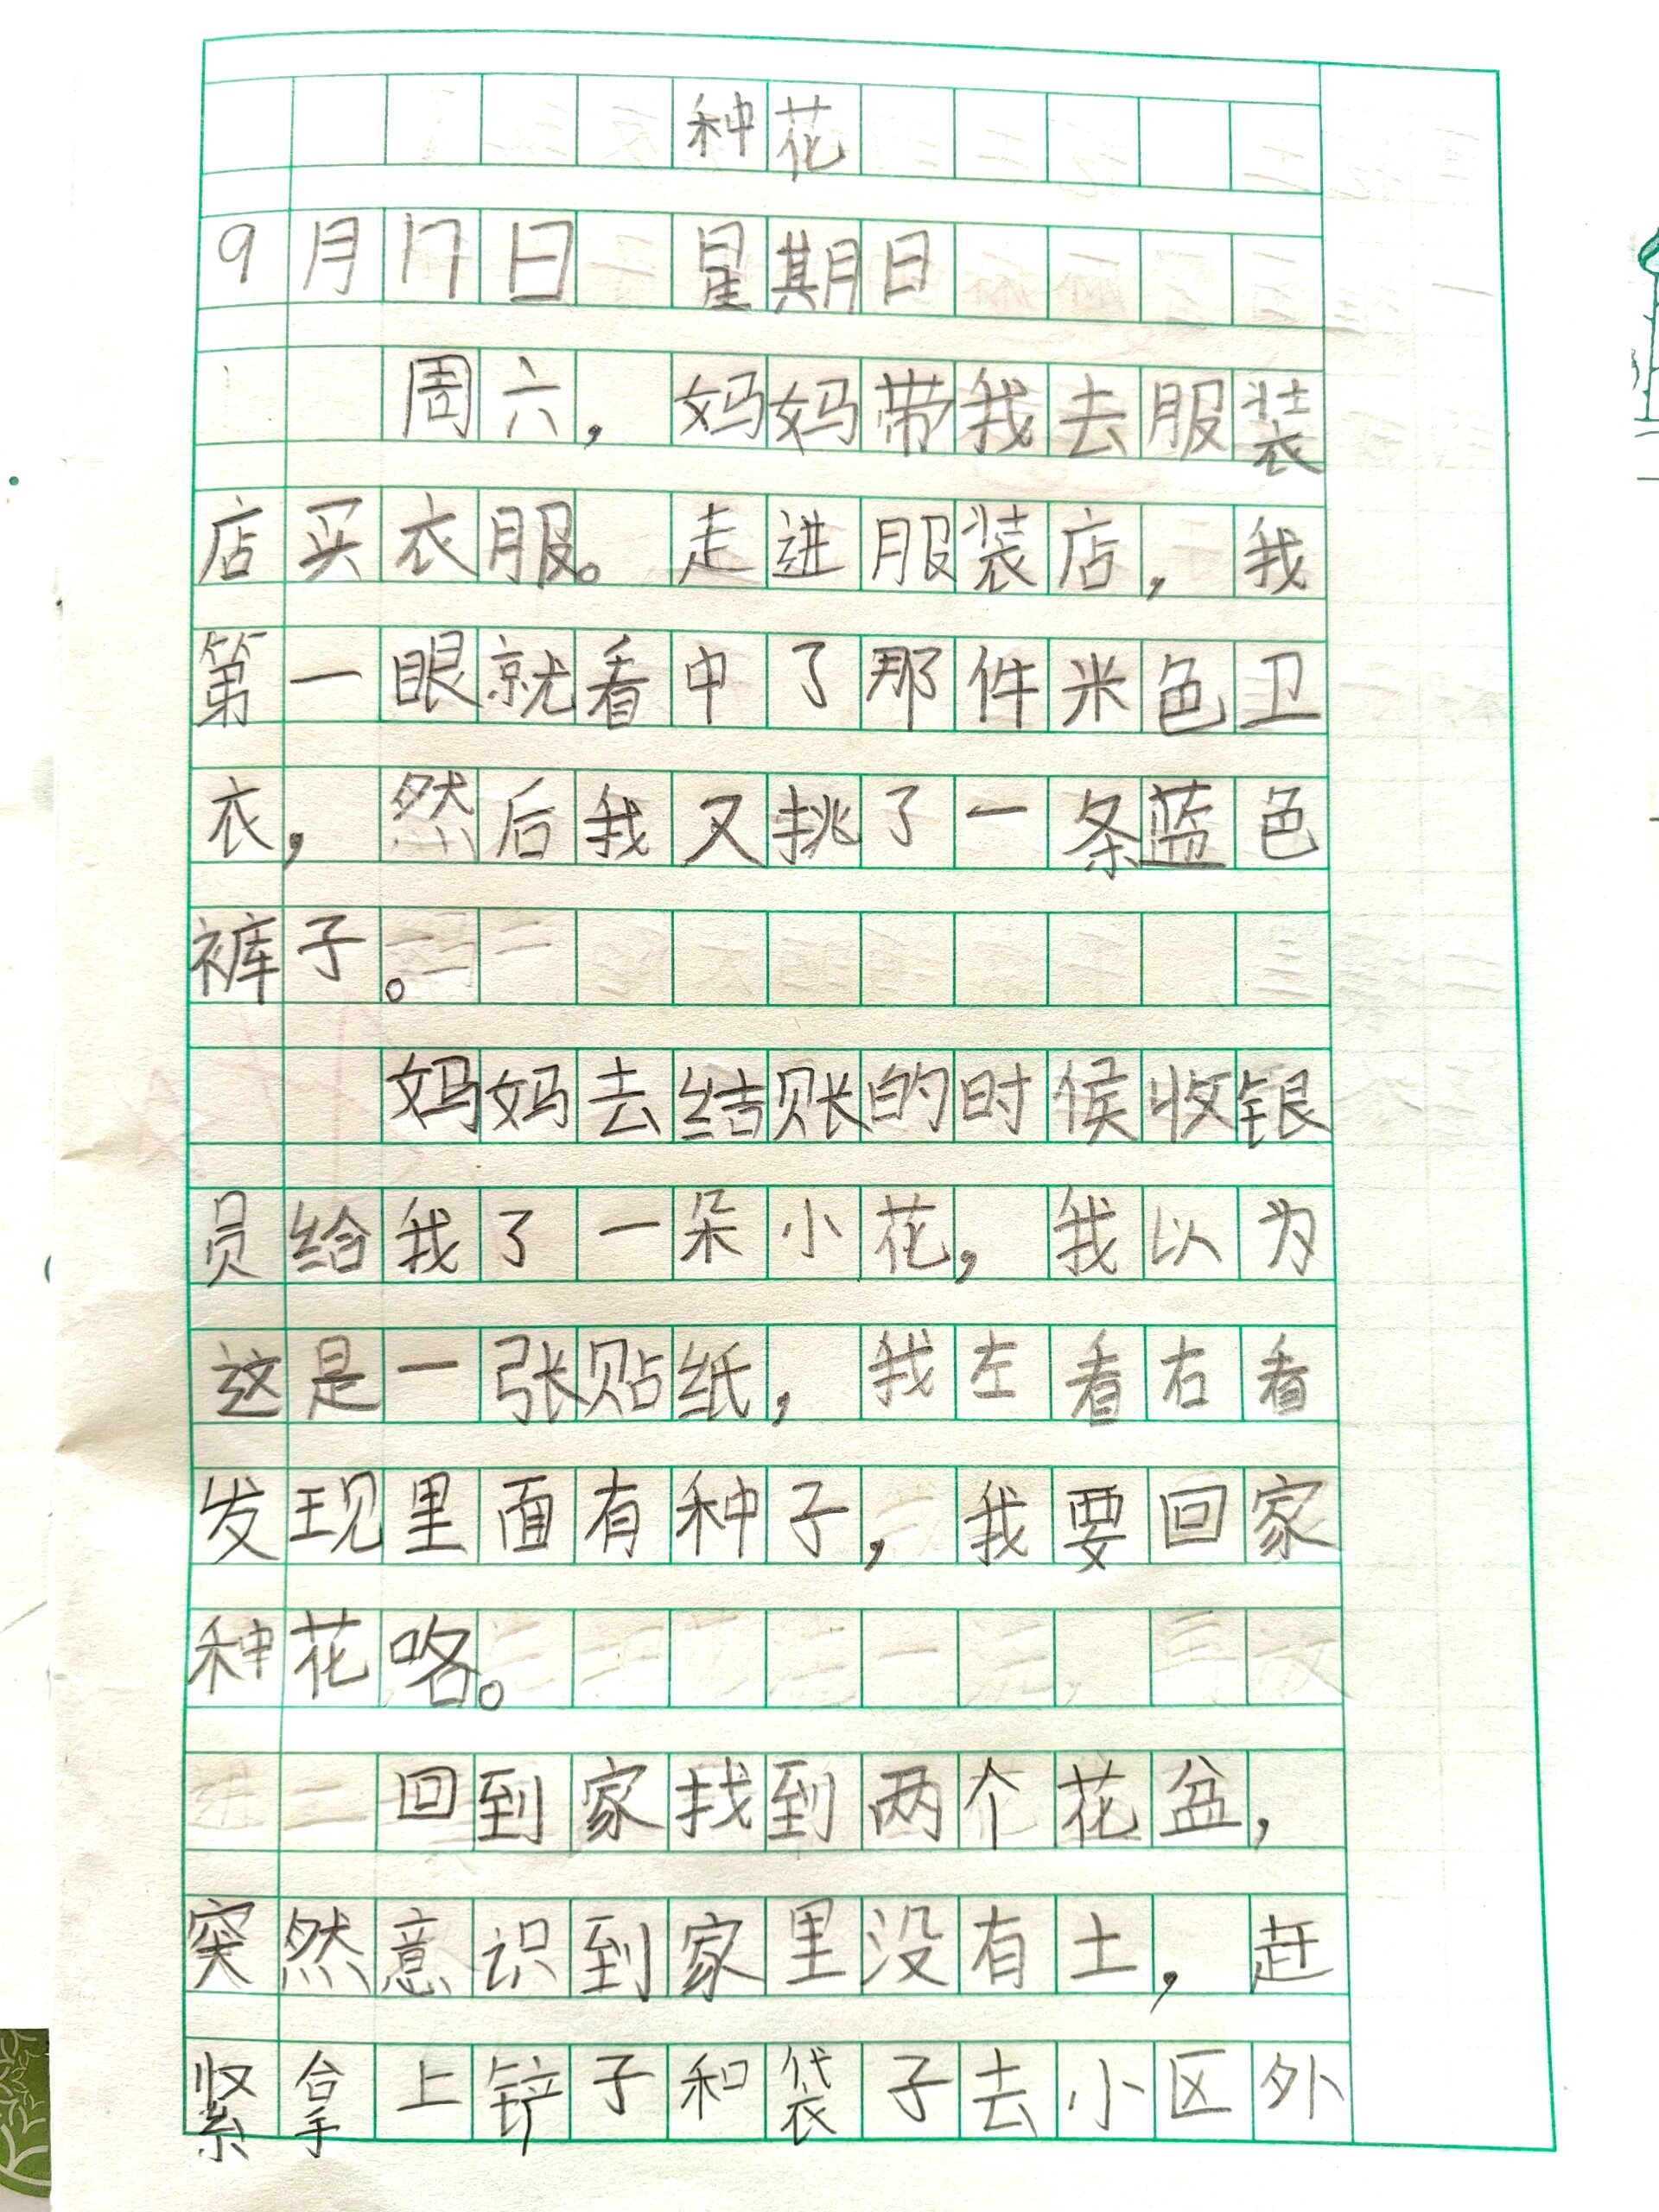 种花
9月17日 星期日
周六，妈妈带我去服装
店买衣服。走进服装店，我
第一眼就看中了那件米色卫
衣，然后我又挑了一条蓝色
裤子。
妈妈去结账的时侯收银
员给我了一朵小花，我以为
这是一张贴纸，我左看右看
发现里面有种子，我要回家
种花咯。
回到家找到两个花盆，
突然意识到家里没有土，赶
紧拿上铲子和袋子去小区外